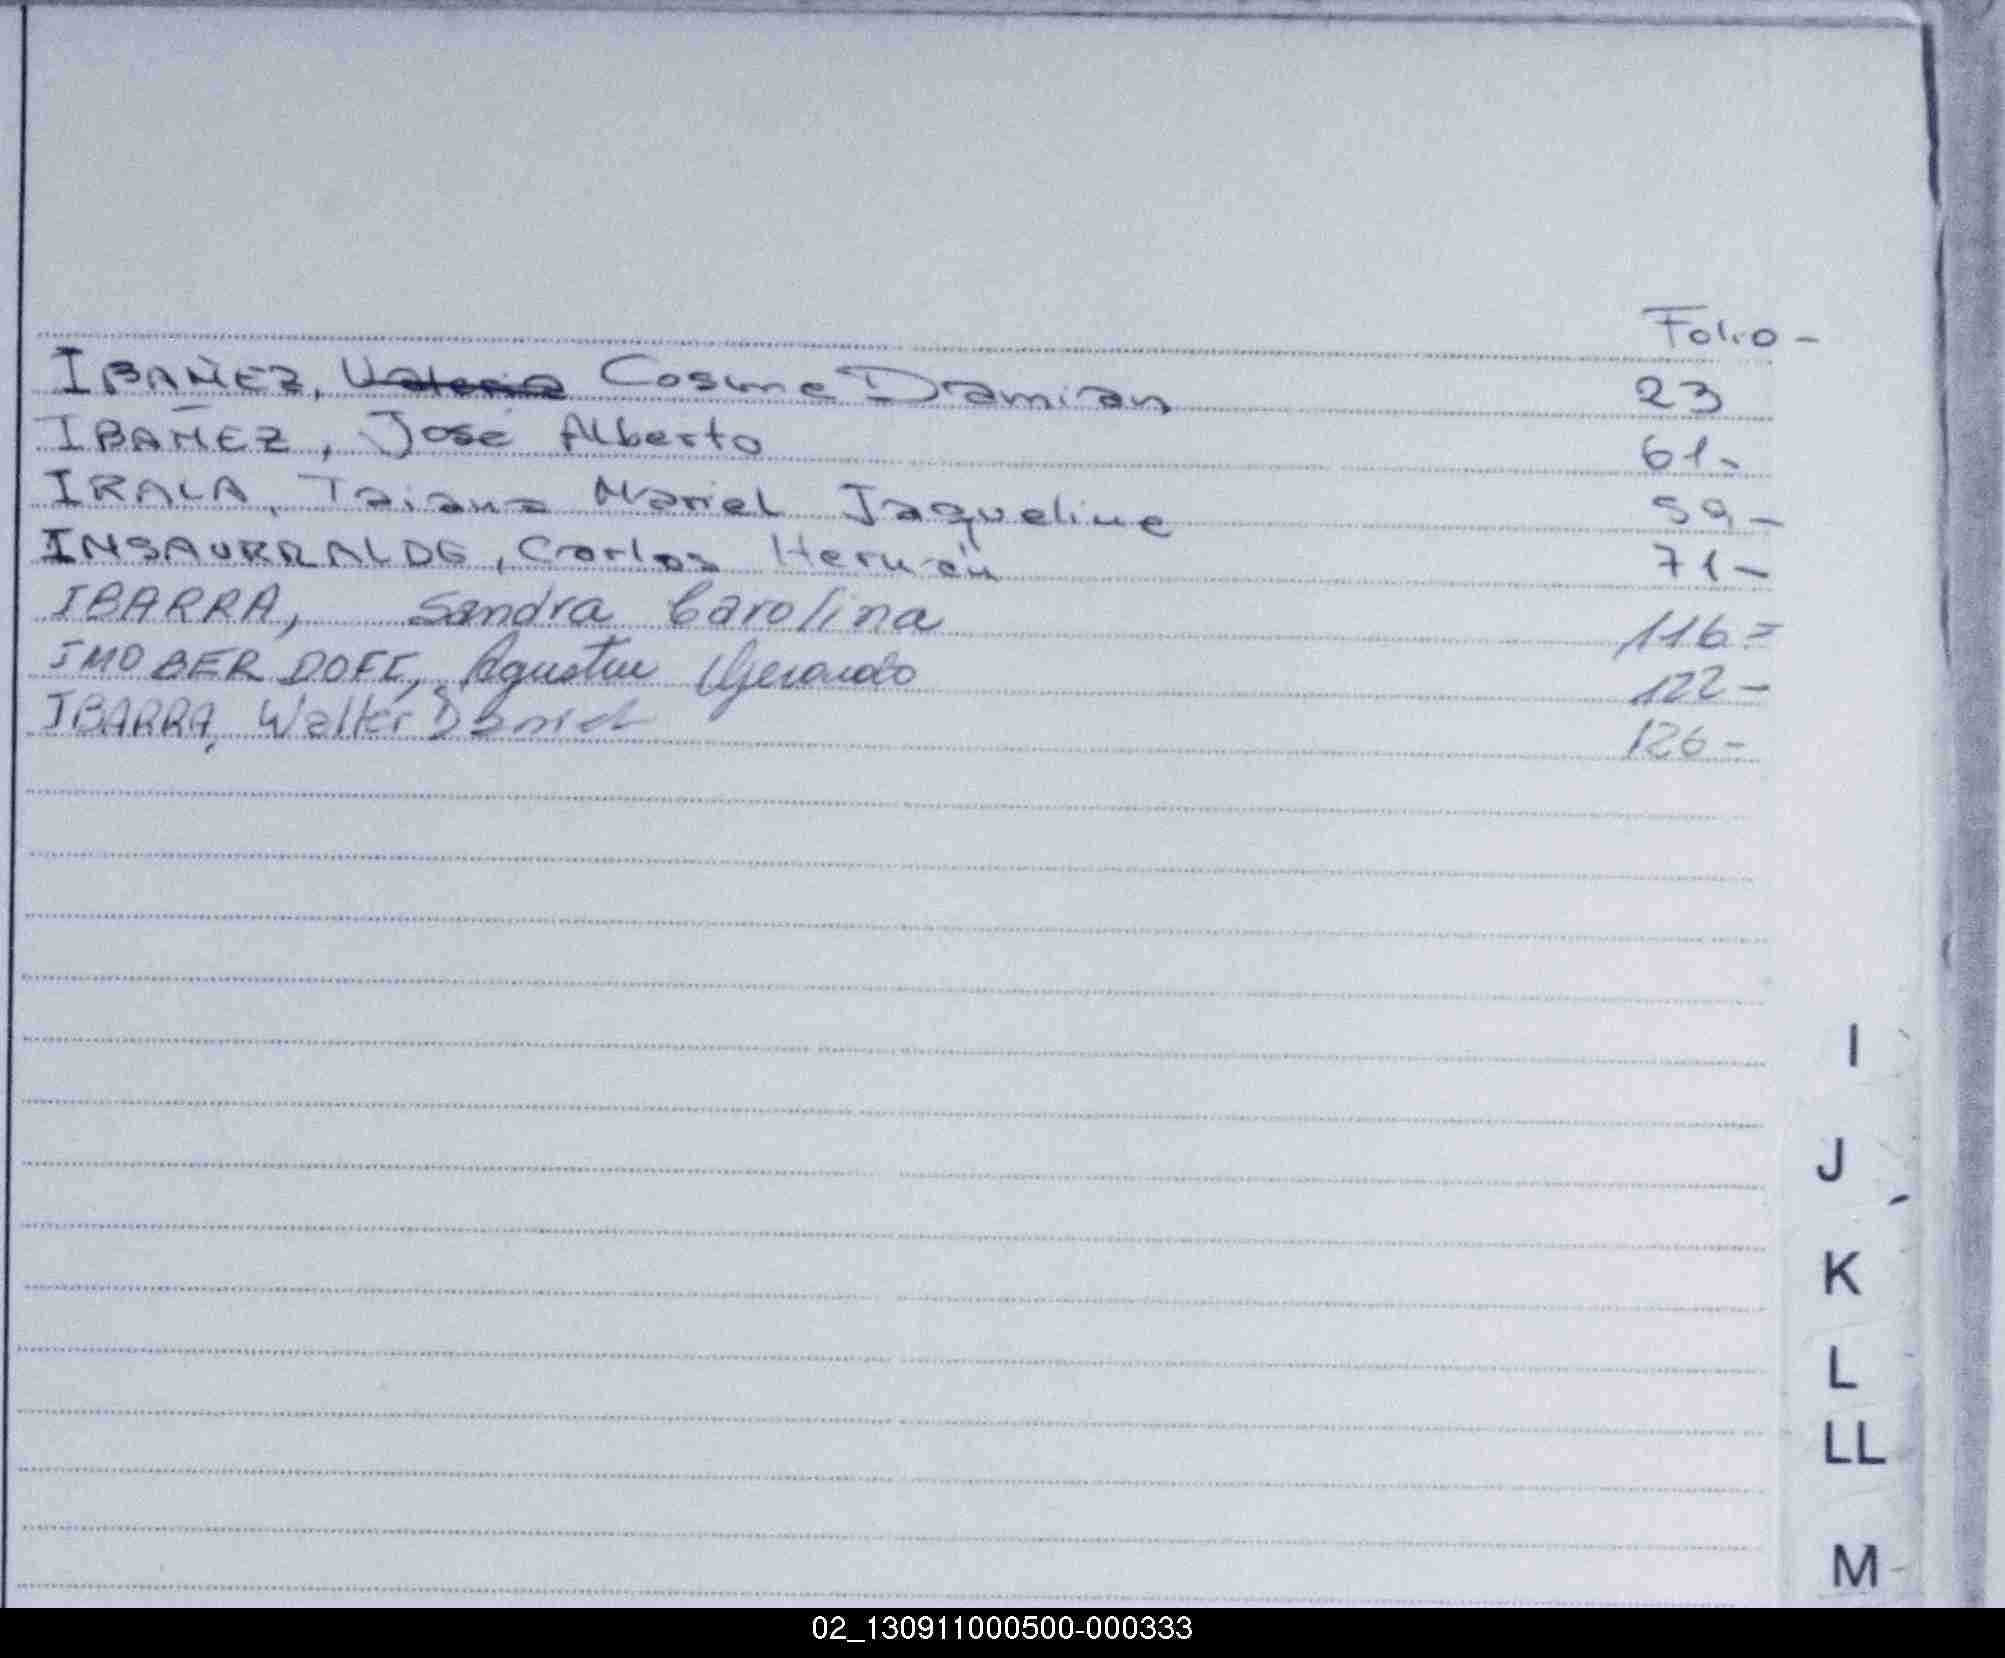 Folio -
IBAÑEZ, Valeria Cosme Damian 23
IBAÑEZ, José Alberto 61-
IRALA, Taiana Mariel Jaqueline 59-
INSAURRALDE, Carlos Hernán 71-
IBARRA, Sandra Carolina 116=
IMOBERDOFF, Agustin Gerardo 122-
IBARRA, Walter Daniel 126-
I
J
K
L
LL
M
02_130911000500-000333